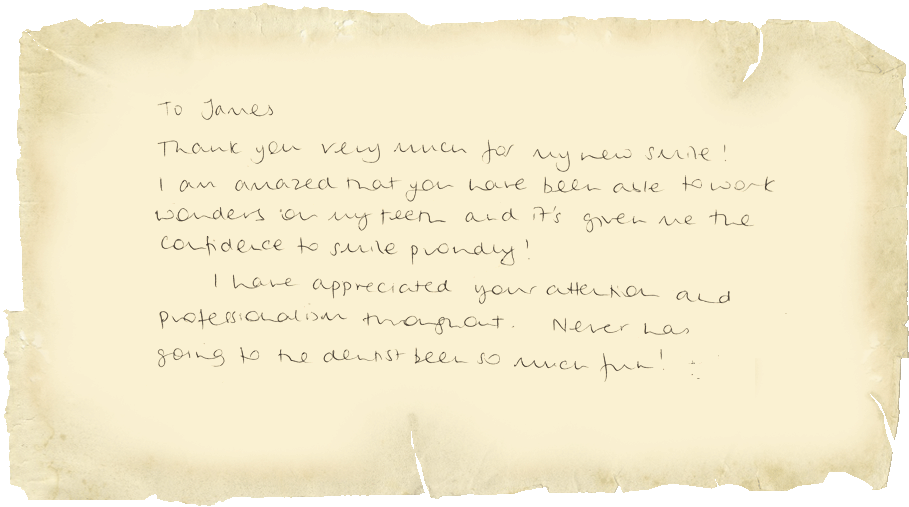 To James
Thank you very much for my new smile!
I am amazed that you have been able to work
wonders on my teeth and it's given me the
confidence to smile proudly!
I have appreciated your attention and
professionalism throughout. Never has
going to the dentist been so much fun!